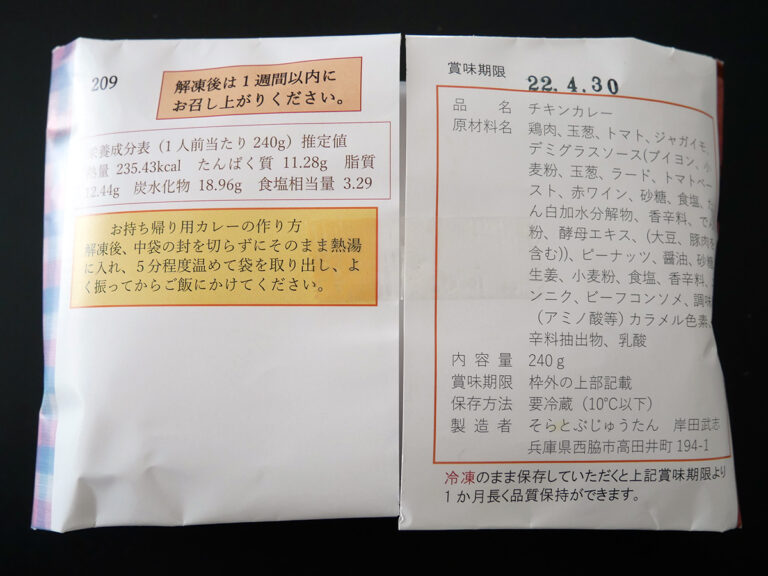 209
解凍後は1週間以内に
お召し上がりください。
栄養成分表（1人前当たり240g）推定値
熱量 235.43kcal たんぱく質 11.28g 脂質
12.44g 炭水化物 18.96g 食塩相当量 3.29
お持ち帰り用カレーの作り方
解凍後、中袋の封を切らずにそのまま熱湯
に入れ、5分程度温めて袋を取り出し、よ
く振ってからご飯にかけてください。
賞味期限 22.4.30
品名 チキンカレー
原材料名 鶏肉、玉葱、トマト、ジャガイモ、
デミグラスソース(ブイヨン、小
麦粉、玉葱、ラード、トマトペー
スト、赤ワイン、砂糖、食塩、た
ん白加水分解物、香辛料、でん
粉、酵母エキス、(大豆、豚肉を
含む))、ピーナッツ、醤油、砂糖
生姜、小麦粉、食塩、香辛料、
ンニク、ビーフコンソメ、調味
（アミノ酸等）カラメル色素、
辛料抽出物、乳酸
内容量 240g
賞味期限 枠外の上部記載
保存方法 要冷蔵（10℃以下）
製造者 そらとぶじゅうたん 岸田武志
兵庫県西脇市高田井町194-1
冷凍のまま保存していただくと上記賞味期限より
1か月長く品質保持ができます。